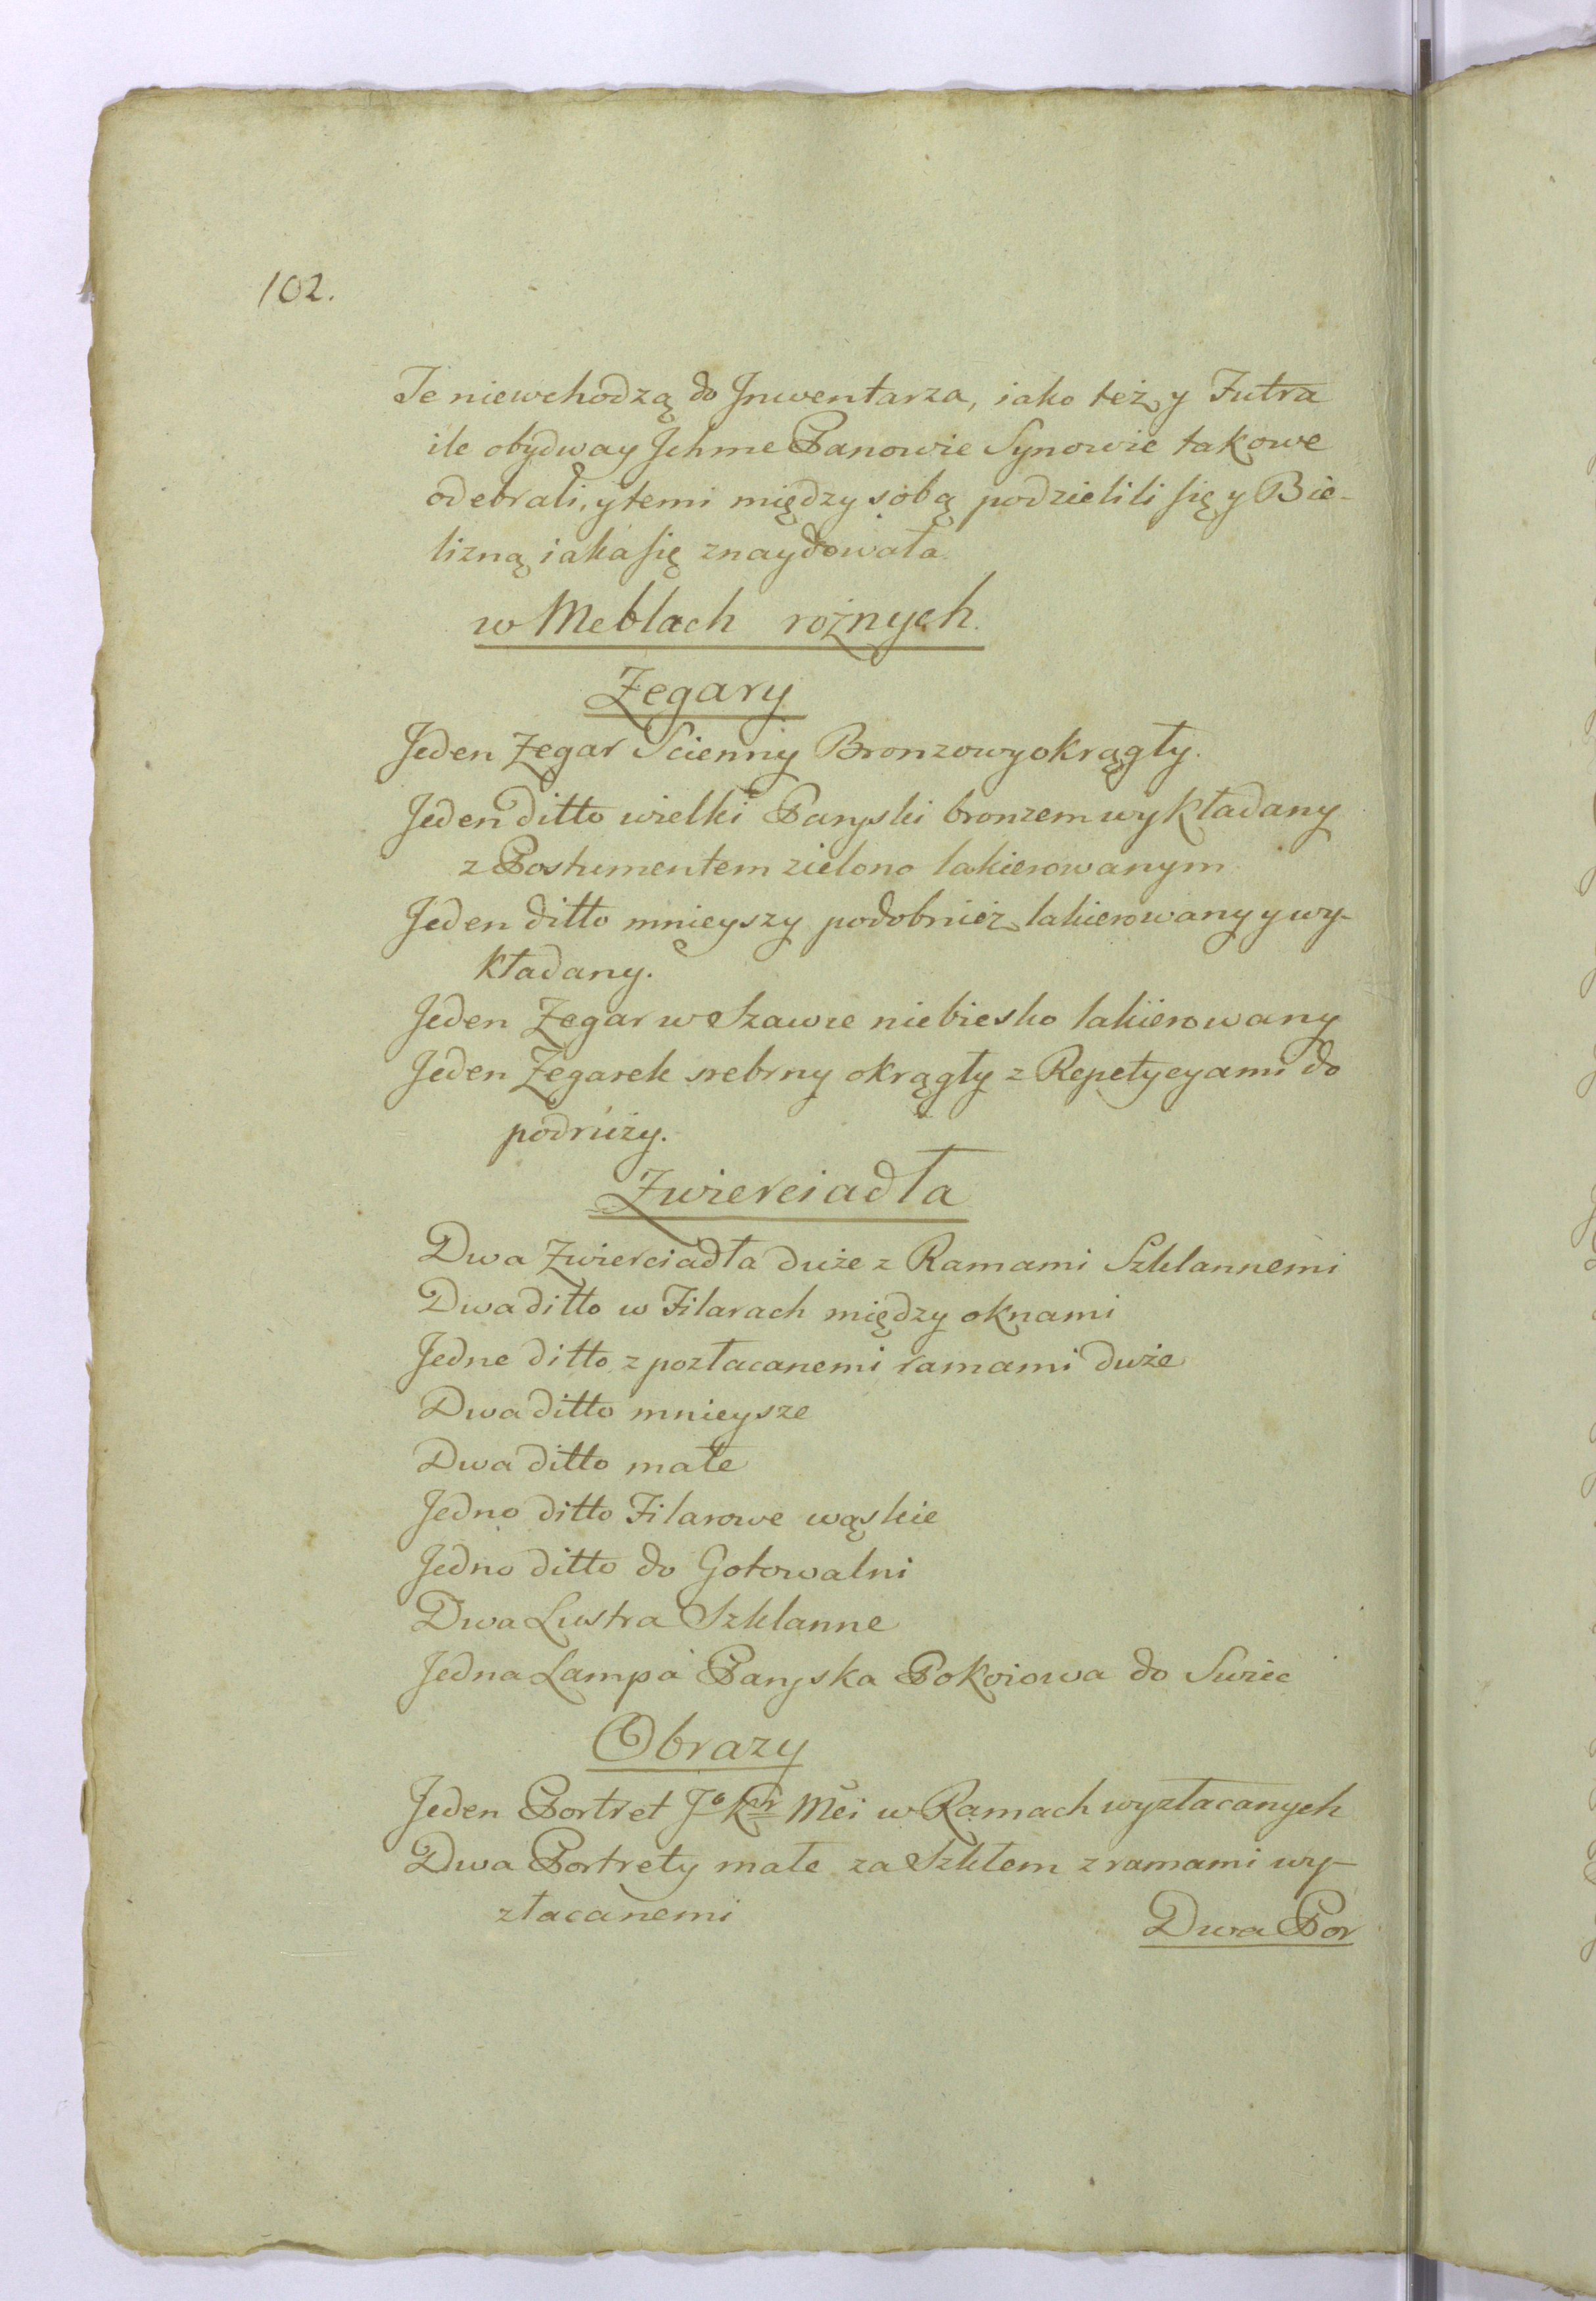 102.
Te niewchodzą do Jnwentarza, iako też y Futra
ile obydway Jchme Panowie Synowie takowe
odebrali, y temi między sobą podzielili się y Bie-
lizną iaka się znaydowała.
w Meblach rożnych.
Zegary
Jeden Zegar Scienny Bronzowy okrągły.
Jeden ditto wielki Paryski bronzem wykładany
z Postumentem zielono lakierowanym
Jeden ditto mnieyszy podobnież lakierowany y wy-
kładany.
Jeden Zegar w Szawie niebiesko lakierowany
Jeden Zegarek srebrny okrągły z Repetycyami do
podruży.
Zwierciadła
Dwa Zwierciadła duże z Ramami Szklannemi
Dwa ditto w Filarach między oknami
Jedne ditto z pozłacanemi ramami duże
Dwa ditto mnieysze
Dwa ditto małe
Jedno ditto Filarowe wąskie
Jedno ditto do Gotowalni
Dwa Lustra Szklanne
Jedna Lampa Paryska Pokoiowa do Swiec
Obrazy
Jeden Portret Jo Kr Mci w Ramach wyzłacanych
Dwa Portrety małe za Szkłem z ramami wy-
złacanemi
Dwa Por